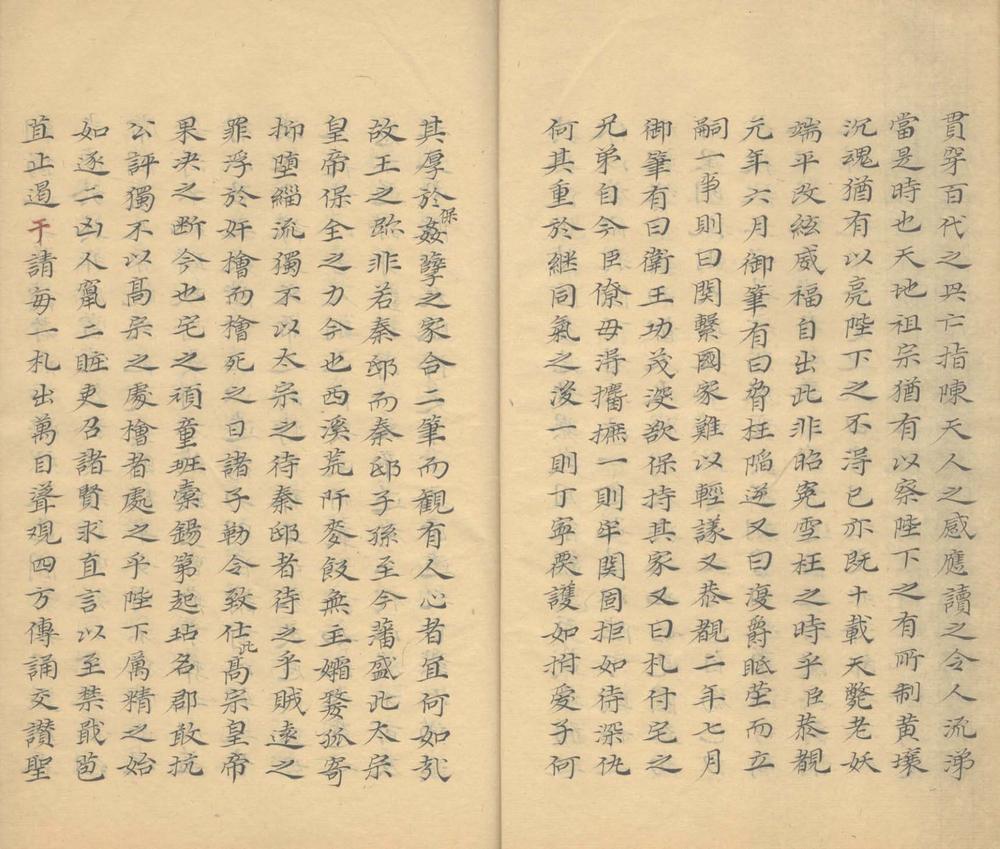 貫穿百代之興亡指陳天人之感應讀之令人流涕
當是時也天地祖宗猶有以察陛下之有所制黄壤
沉魂猶有以亮陛下之不淂已亦既十載天斃老妖
端平改絃威福自出此非昭冤雪枉之時乎臣恭覩
元年六月御筆有曰脅枉陷逆又曰復爵眂塋而立
嗣一事則曰関繫國家難以輕議又恭覩二年七月
御筆有曰衛王功茂深欲保持其家又曰札付宅之
兄弟自今臣僚毋淂攟摭一則牢関固拒如待深仇
何其重於継同氣之後一則丁寧覆護如拊愛子何
其厚於保姦孽之家合二筆而観有人心者宜何如㢤
故王之跡非若秦邸而秦邸子孫至今蕃盛此太宗
皇帝保全之力今也西溪荒阡麥飯無主孀嫠孤寄
抑墮緇流獨不以太宗之待秦邸者待之乎賊遠之
罪浮於奸檜而檜死之日諸子勒令致仕此髙宗皇帝
果决之断今也宅之頑童班橐錫第起玷名郡敢抗
公評獨不以髙宗之處檜者處之乎陛下厲精之始
如逐二凶人竄二賍吏召諸賢求直言以至禁戢苞
苴止遏干請每一札出萬目聳观四方傳誦交讃聖